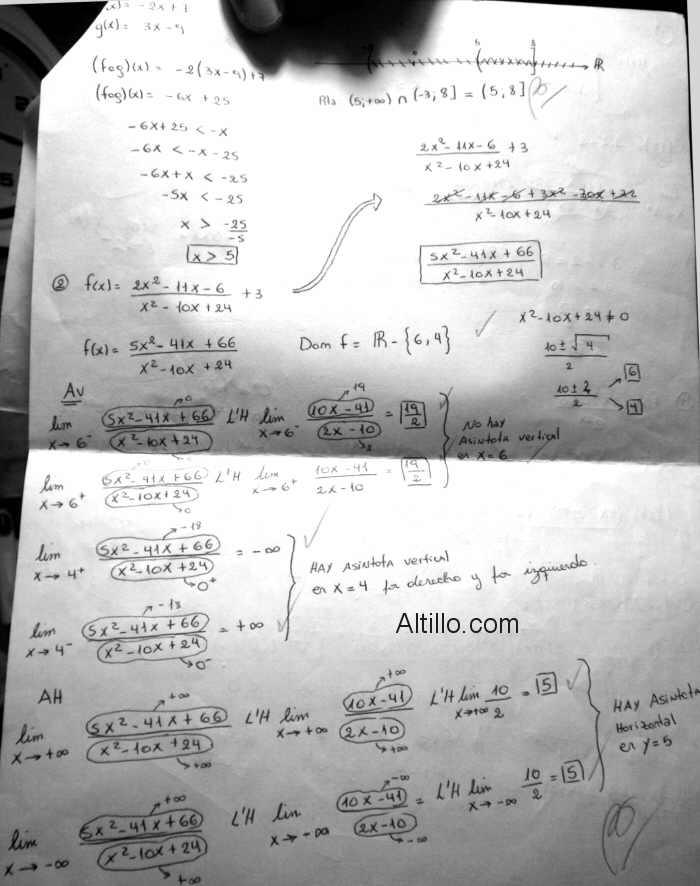 (x) = -2x + 1
g(x) = 3x - 9
(fog)(x) = -2(3x - 9) + 7
(fog)(x) = -6x + 25
-6x + 25 < -x
-6x < -x - 25
-6x + x < -25
-5x < -25
x > -25/-5
x > 5
5 8 R
Rta (5;+∞) ∩ (-3, 8] = (5, 8]
② f(x) = (2x² - 11x - 6)/(x² - 10x + 24) + 3
(2x² - 11x - 6)/(x² - 10x + 24) + 3
(2x² - 11x - 6 + 3x² - 30x + 72)/(x² - 10x + 24)
(5x² - 41x + 66)/(x² - 10x + 24)
f(x) = (5x² - 41x + 66)/(x² - 10x + 24) Dom f = R - {6, 4}
x² - 10x + 24 ≠ 0
(10 ± √4)/2
(10 ± 2)/2 → 6 → 4
AV
lim x→6⁻ (5x² - 41x + 66)/(x² - 10x + 24) L'H lim x→6⁻ (10x - 41)/(2x - 10) = 19/2
lim x→6⁺ (5x² - 41x + 66)/(x² - 10x + 24) L'H lim x→6⁺ (10x - 41)/(2x - 10) = 19/2
No hay
Asintota vertical
en x = 6
lim x→4⁺ (5x² - 41x + 66 → -18)/(x² - 10x + 24 → 0⁺) = -∞
lim x→4⁻ (5x² - 41x + 66 → -18)/(x² - 10x + 24 → 0⁻) = +∞
HAY Asintota vertical
en x = 4 por derecho y por izquierdo.
Altillo.com
AH
lim x→+∞ (5x² - 41x + 66 → +∞)/(x² - 10x + 24 → +∞) L'H lim x→+∞ (10x - 41 → +∞)/(2x - 10 → +∞) L'H lim x→+∞ 10/2 = 5
lim x→-∞ (5x² - 41x + 66 → +∞)/(x² - 10x + 24 → +∞) L'H lim x→-∞ (10x - 41 → -∞)/(2x - 10 → -∞) = L'H lim x→-∞ 10/2 = 5
HAY Asintota
Horizontal
en y = 5